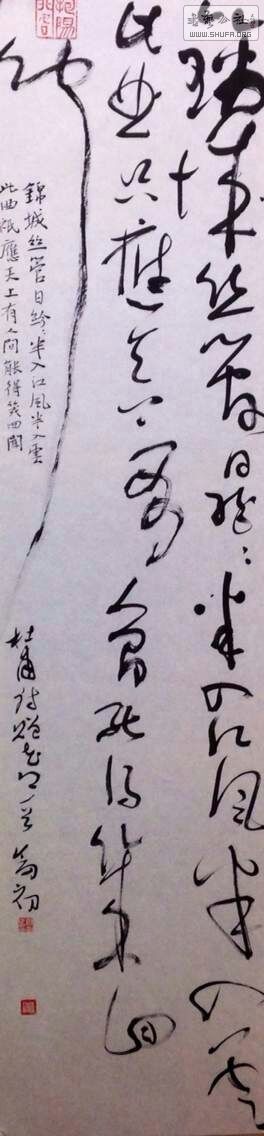 WWW.SHUFA.ORG
錦城丝管日紛〻半入江風半入雲
此曲只應天上有人間能得幾回
聞
錦城丝管日紛〻半入江風半入雲
此曲祇應天上有人間能得幾回聞
杜甫詩贈花卿一首